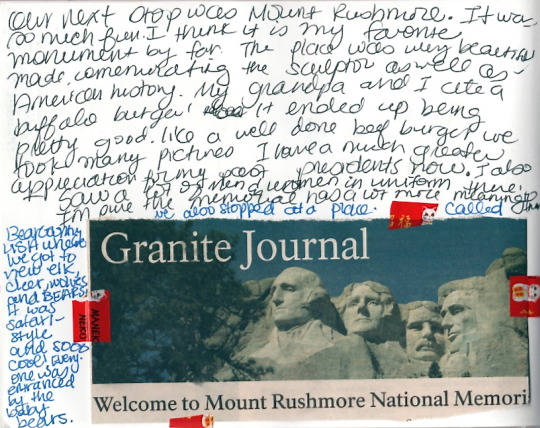 Our next stop was Mount Rushmore. It was
so much fun. I think it is my favorite
monument by far. The place was very beautiful
made, comemorating the sculptor as well as
American history. My grandpa and I ate a
buffalo burger! It ended up being
pretty good. like a well done beef burger. we
took many pictures I have a much greater
appreciation for my past presidents now. I also
saw a lot of men & women in uniform there.
I'm sure the memorial has a lot more meaning to
we also stopped at a place called
Bear country
USA where
we got to
view elk
deer, wolves
and BEARS!
It was
safari-
style
and sooo
cool. Every-
one was
entranced
by the
baby
bears.
福
MANEKI
NEKO
Granite Journal
Welcome to Mount Rushmore National Memori